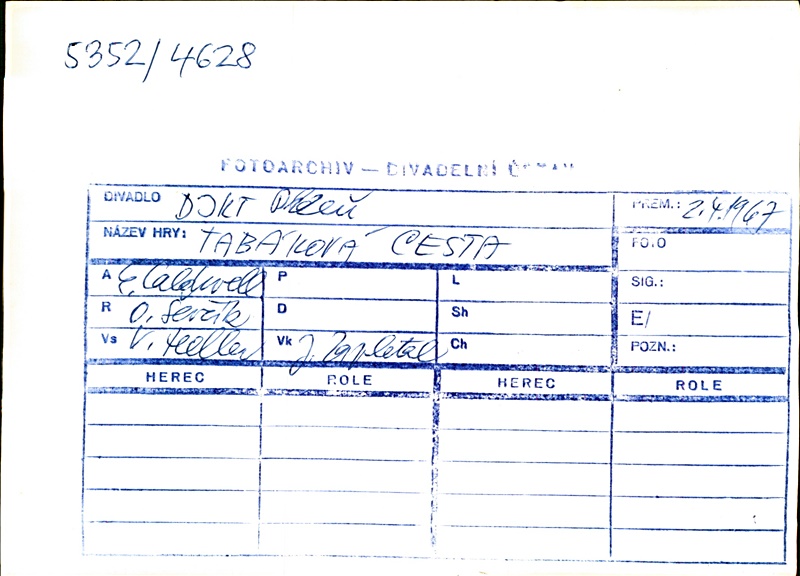 5352/4628
FOTOARCHIV — DIVADELNÍ
DIVADLO DJKT Plzeň PREM.: 2.4.1967
NÁZEV HRY: TABÁKOVÁ CESTA FOTO
A E. Caldwell P L SIG.:
R O. Ševčík D Sh E/
Vs V. Heller Vk J. Zapletal Ch POZN.:
HEREC ROLE HEREC ROLE